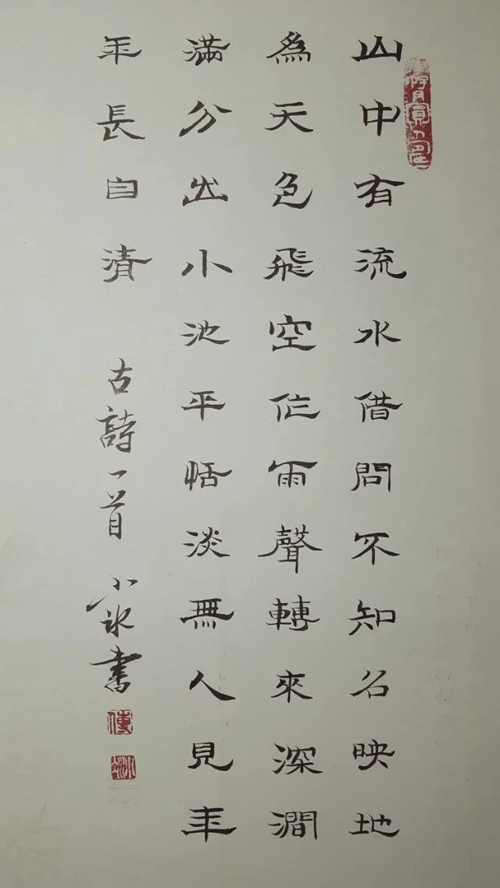 山中有流水借問不知名映地
為天色飛空作雨聲轉來深澗
滿分出小池平恬淡無人見年
年長自清
古詩一首 小冰書